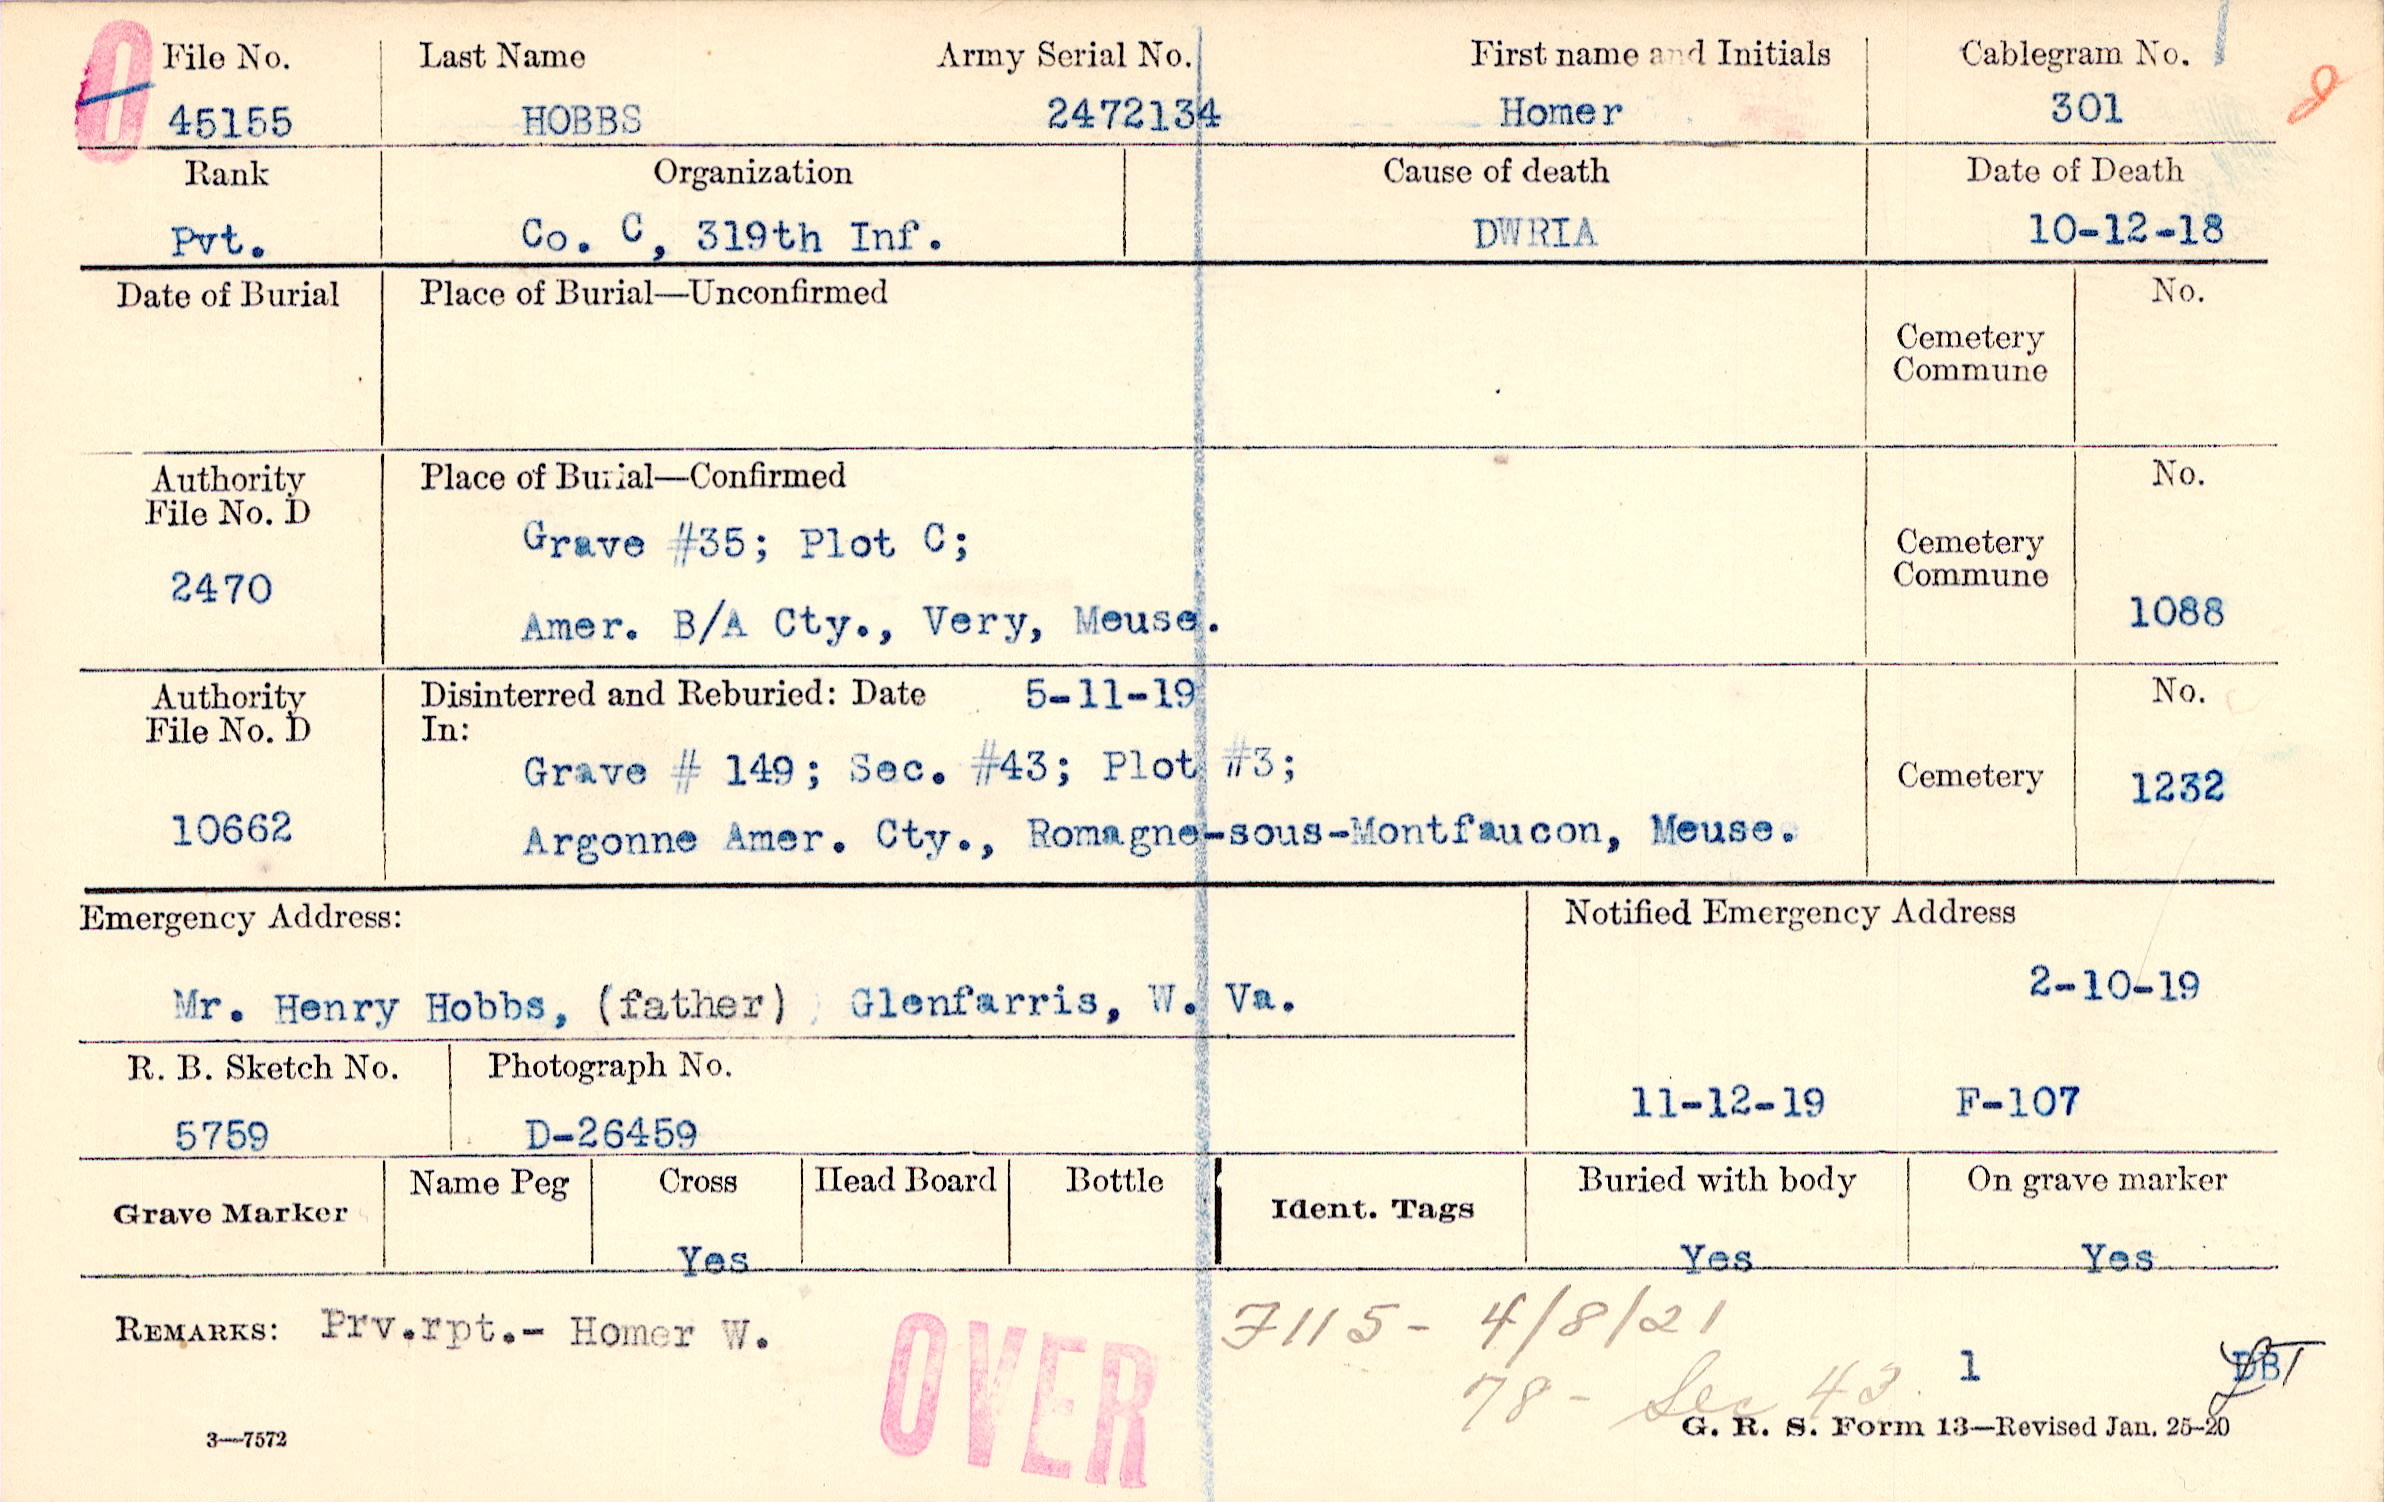 O
File No. Last Name Army Serial No. First name and Initials Cablegram No.
45155 HOBBS 2472134 Homer 301
Rank Organization Cause of death Date of Death
Pvt. Co. C, 319th Inf. DWRIA 10-12-18
Date of Burial Place of Burial—Unconfirmed No.
Cemetery
Commune
Authority Place of Burial—Confirmed No.
File No. D
Grave #35; Plot C; Cemetery
Commune
2470
Amer. B/A Cty., Very, Meuse. 1088
Authority Disinterred and Reburied: Date 5-11-19 No.
File No. D In:
Grave # 149; Sec. #43; Plot #3; Cemetery 1232
10662 Argonne Amer. Cty., Romagne-sous-Montfaucon, Meuse.
Emergency Address: Notified Emergency Address
2-10-19
Mr. Henry Hobbs, (father) Glenfarris, W. Va.
R. B. Sketch No. Photograph No.
11-12-19 F-107
5759 D-26459
Grave Marker Name Peg Cross Head Board Bottle Ident. Tags Buried with body On grave marker
Yes Yes Yes
REMARKS: Prv.rpt.- Homer W. 7115- 4/8/21
OVER
1 DBT
78- Sec 43
3—7572 G. R. S. Form 13—Revised Jan. 25-20